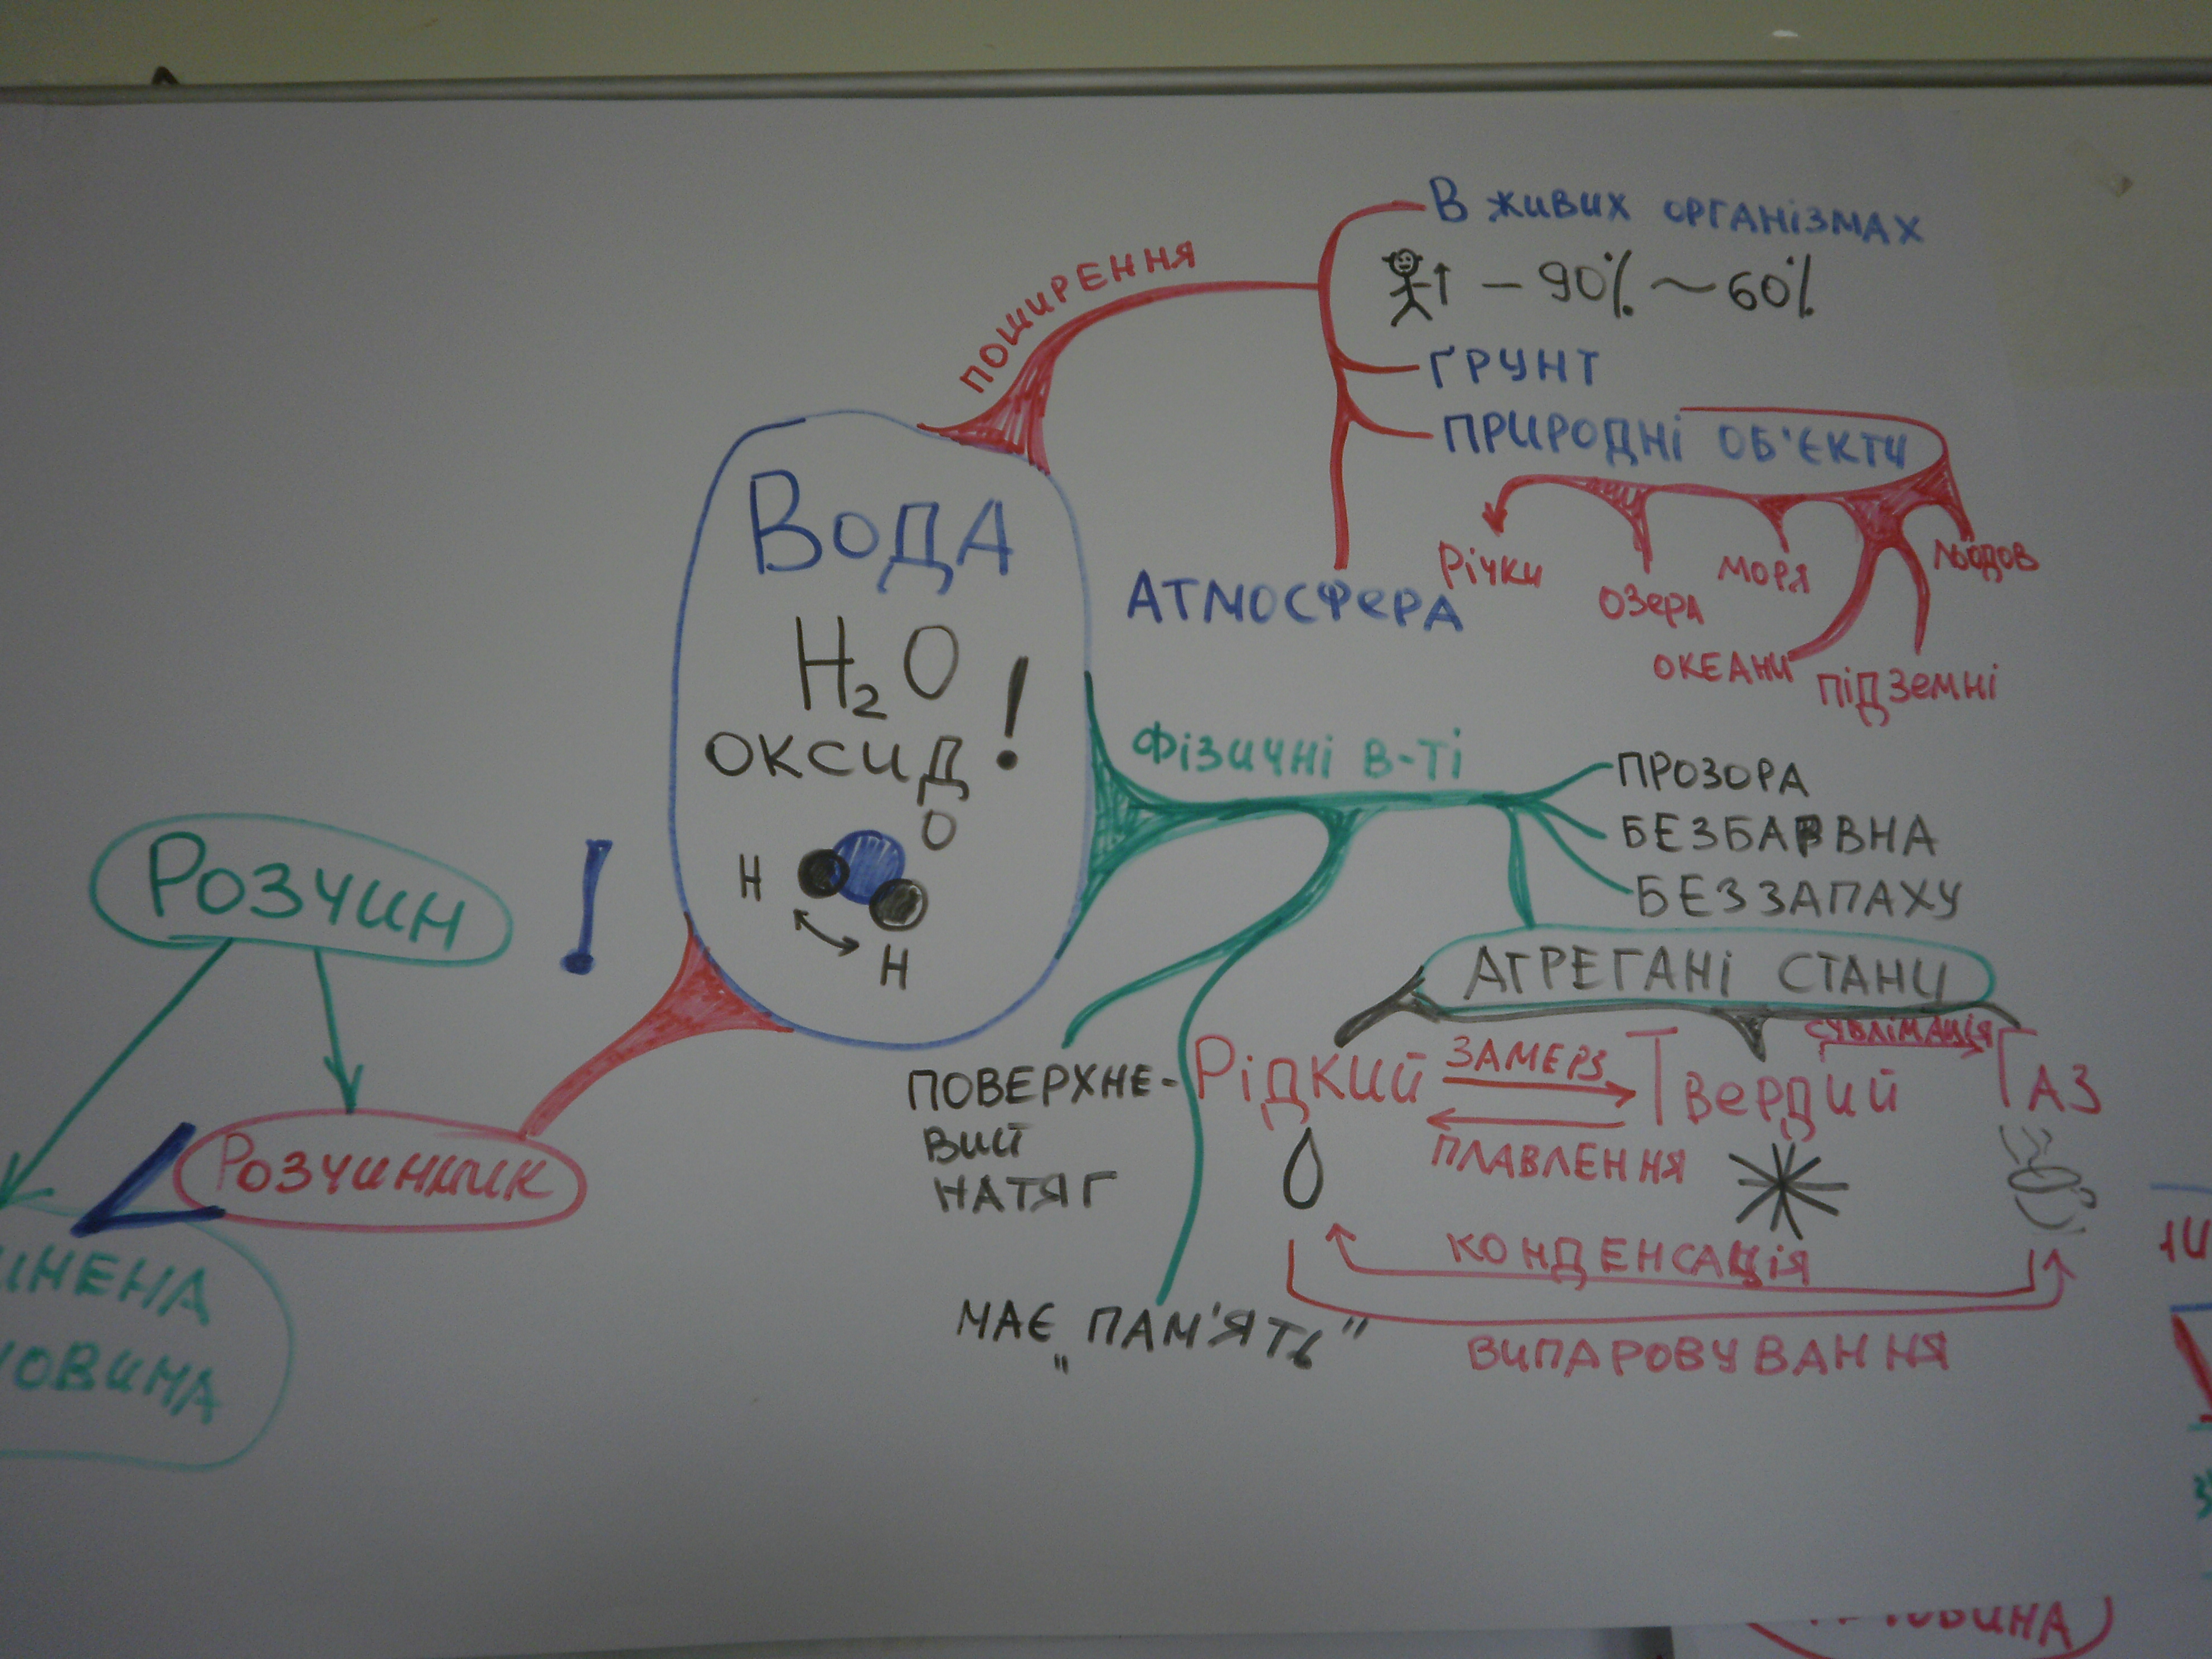 ПОШИРЕННЯ
В живих організмах
– 90% ~ 60%
ҐРУНТ
ПРИРОДНІ ОБ'ЄКТИ
Річки
озера
моря
океани
підземні
льодов
АТМОСФЕРА
Вода
H₂O
оксид !
O
H
H
Фізичні в-ті
ПРОЗОРА
БЕЗБАРВНА
БЕЗ ЗАПАХУ
АГРЕГАНІ СТАНИ
Рідкий
ЗАМЕРЗ
ПЛАВЛЕННЯ
Твердий
СУБЛІМАЦІЯ
ГАЗ
КОНДЕНСАЦІЯ
ВИПАРОВУВАННЯ
ПОВЕРХНЕ-
ВИЙ
НАТЯГ
МАЄ „ПАМ'ЯТЬ"
!
Розчин
Розчинник
ИНЕНА
ОВИНА
ОВИНА